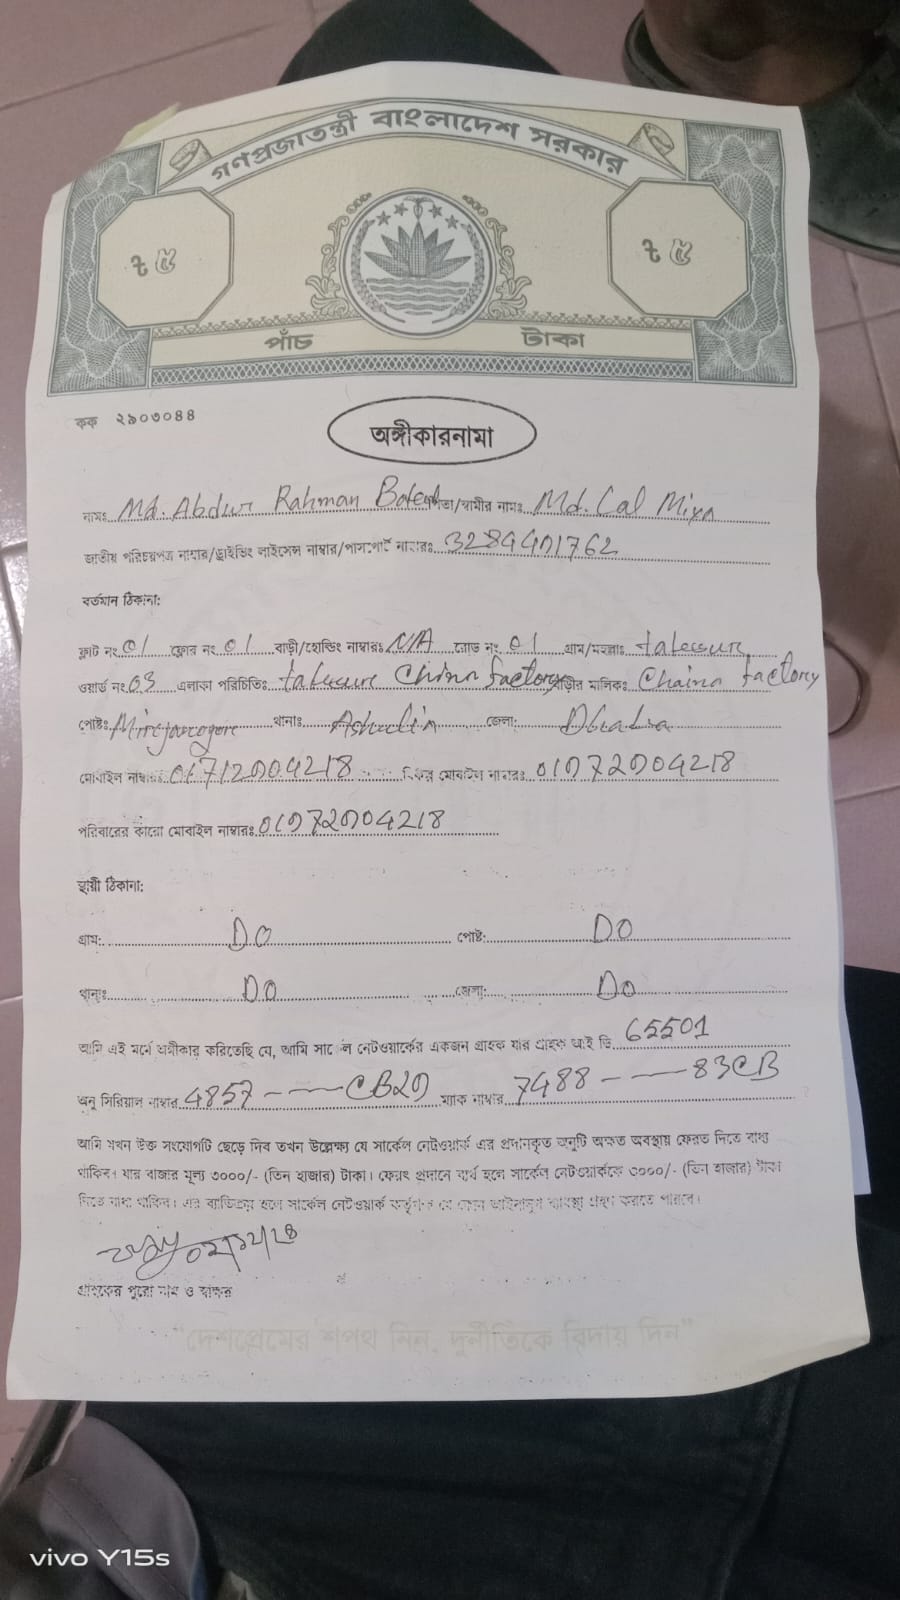 গণপ্রজাতন্ত্রী বাংলাদেশ সরকার
৳ ৫ ৳ ৫
পাঁচ টাকা
কক ২৯০৩০৪৪
অঙ্গীকারনামা
নামঃ Md. Abdur Rahman পিতা/স্বামীর নামঃ Md. Lal Miya
জাতীয় পরিচয়পত্র নাম্বার/ড্রাইভিং লাইসেন্স নাম্বার/পাসপোর্ট নাম্বারঃ
বর্তমান ঠিকানা:
ফ্লাট নং 01 ফ্লোর নং 01 বাড়ী/হোল্ডিং নাম্বারঃ N/A রোড নং 01 গ্রাম/মহল্লাঃ
ওয়ার্ড নং 03 এলাকা পরিচিতিঃ China factory বাড়ীর মালিকঃ Chaina factory
পোষ্টঃ থানাঃ Ashulia জেলা: Dhaka
মোবাইল নাম্বারঃ মোবাইল নাম্বারঃ
পরিবারের কারো মোবাইল নাম্বারঃ
স্থায়ী ঠিকানা:
গ্রাম: DO পোষ্ট: DO
থানাঃ DO জেলা: DO
আমি এই মর্মে অঙ্গীকার করিতেছি যে, আমি সার্কেল নেটওয়ার্কের একজন গ্রাহক যার গ্রাহক আই ডি 65501
অনু সিরিয়াল নাম্বার ম্যাক নাম্বার 7488 - — 83CB
আমি যখন উক্ত সংযোগটি ছেড়ে দিব তখন উল্লেক্ষ্য যে সার্কেল নেটওয়ার্ক এর প্রদানকৃত অনুটি অক্ষত অবস্থায় ফেরত দিতে বাধ্য
থাকিব। যার বাজার মূল্য ৩০০০/- (তিন হাজার) টাকা। ফেরৎ প্রদানে ব্যর্থ হলে সার্কেল নেটওয়ার্ককে ৩০০০/- (তিন হাজার) টাকা
দিতে বাধ্য থাকিব। এর ব্যতিক্রম হলে সার্কেল নেটওয়ার্ক কর্তৃপক্ষ যে কোন আইনানুগ ব্যবস্থা গ্রহণ করতে পারবে।
গ্রাহকের পুরো নাম ও স্বাক্ষর
"দেশপ্রেমের শপথ নিন, দুর্নীতিকে বিদায় দিন"
vivo Y15s